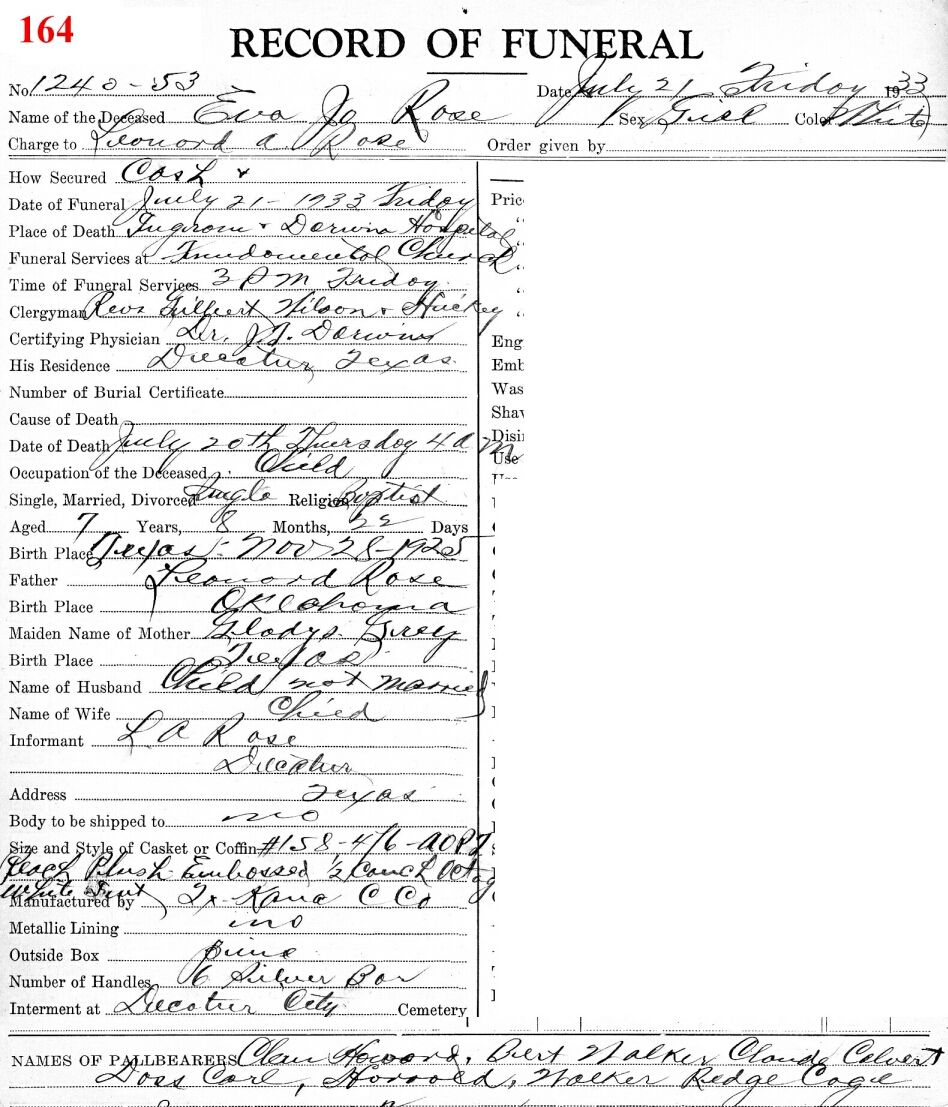 164
RECORD OF FUNERAL
No. 1240-53 Date July 21 Friday 1933
Name of the Deceased Eva Jo Rose Sex Girl Color White
Charge to Leonard A Rose Order given by
How Secured Cash
Date of Funeral July 21-1933 Friday
Pric
Place of Death Ingram & Derwin Hospital
Funeral Services at Fundamental Church
Time of Funeral Services 3 PM Friday
Clergyman Revs Gilbert Wilson & Huckey
Certifying Physician Dr. J.J. Derwin
Eng
His Residence Decatur, Texas
Emb
Number of Burial Certificate
Was
Cause of Death
Shav
Date of Death July 20th Thursday 4 a m
Disi
Use
Occupation of the Deceased Child
Single, Married, Divorced Single Religion Baptist
Aged 7 Years, 8 Months, 22 Days
Birth Place Texas - Nov 28-1925
Father Leonard Rose
Birth Place Oklahoma
Maiden Name of Mother Gladys Grey
Birth Place Texas
Name of Husband Child not married
Name of Wife Child
Informant L A Rose
Decatur
Address Texas
Body to be shipped to no
Size and Style of Casket or Coffin #158-4/6-
Peach Plush Embossed ½ Couch Octag
White
Manufactured by Tx-Kana C Co
Metallic Lining no
Outside Box pine
Number of Handles 6 Silver Bar
Interment at Decatur City Cemetery
NAMES OF PALLBEARERS Howard, Bert Walker Claude Calvert
Doss Carl, Walker Redge Cagle